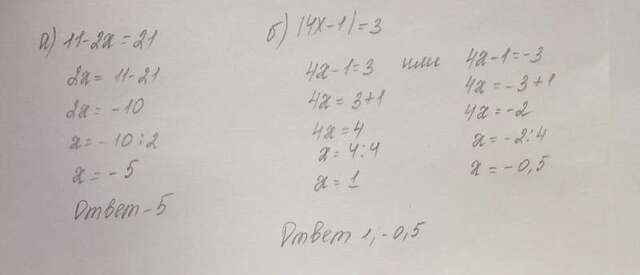 а) 11-2x=21
2x= 11-21
2x= -10
x= -10:2
x= -5
Ответ -5
б) |4x-1|=3
4x-1=3 или 4x-1=-3
4x= 3+1 4x= -3+1
4x=4 4x= -2
x= 4:4 x= -2:4
x= 1 x= -0,5
Ответ 1; -0,5